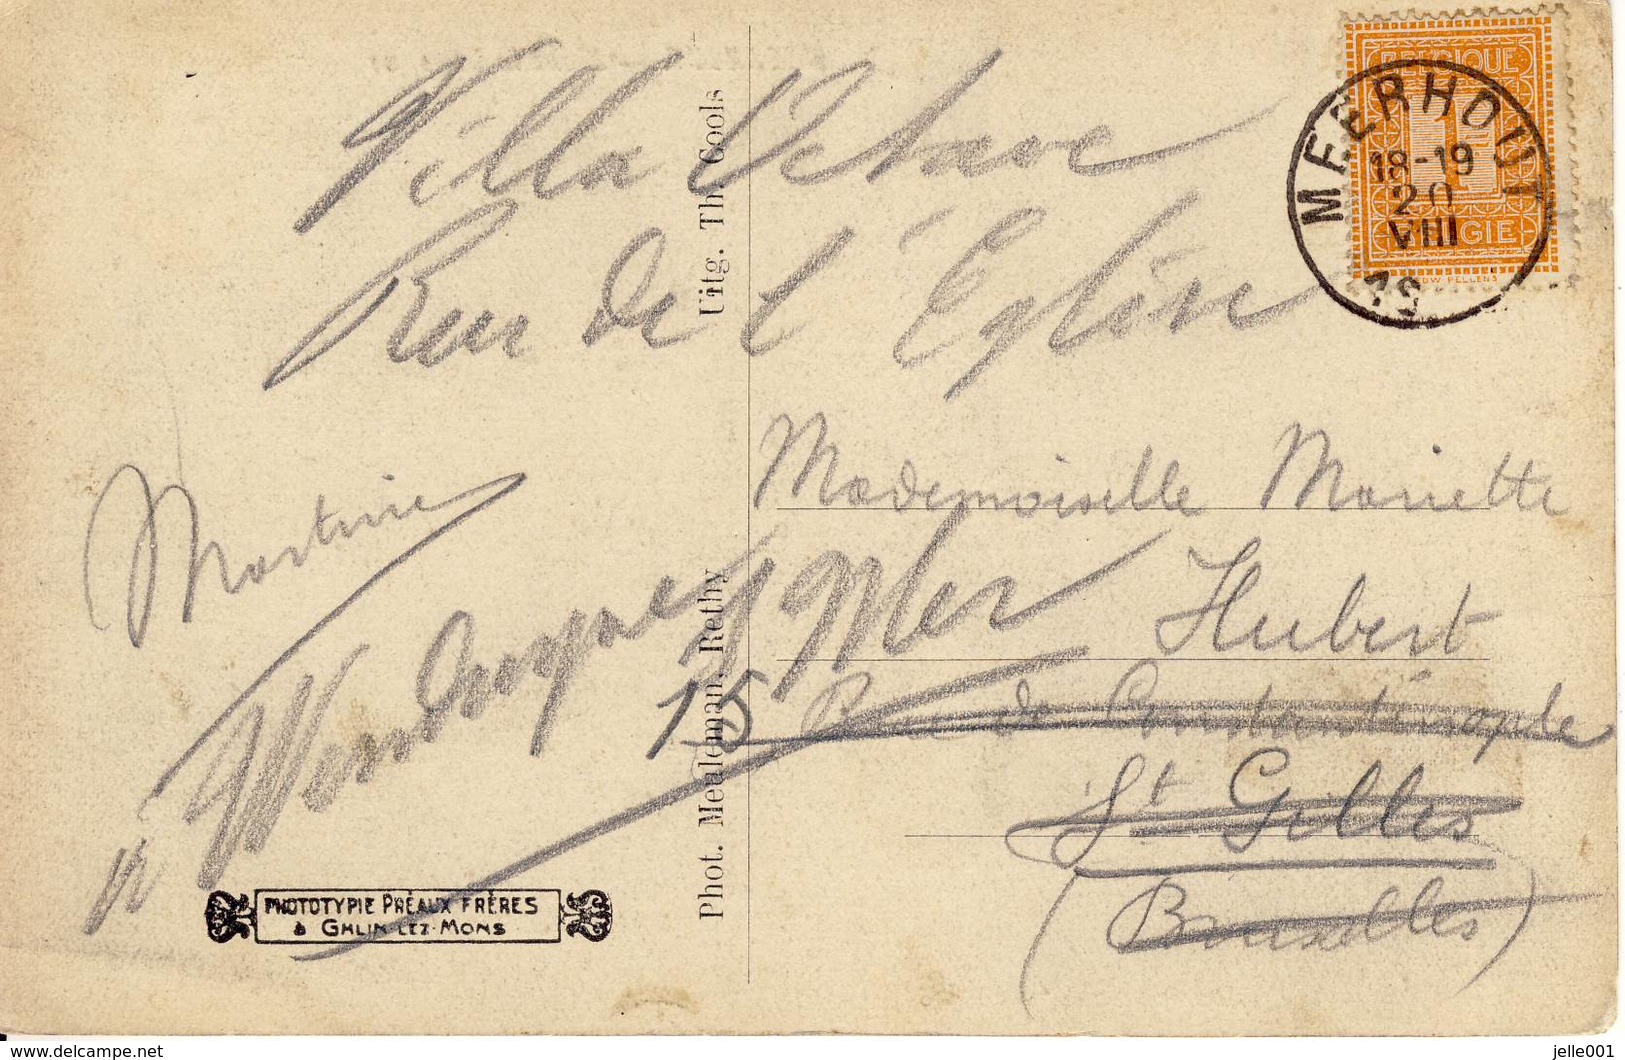 Villa Octave
Rue de l'Église
Martine
Mademoiselle Mariette
Hubert
15 Rue de Constantinople
St Gilles
(Bruxelles)
Phot. Meuleman, Rethy
Uitg. Th. Cools
PHOTOTYPIE PRÉAUX FRÈRES
à GHLIN-LEZ-MONS
BELGIQUE
1
BELGIE
MEERHOUT
18-19
20
VIII
delcampe.net
jelle001